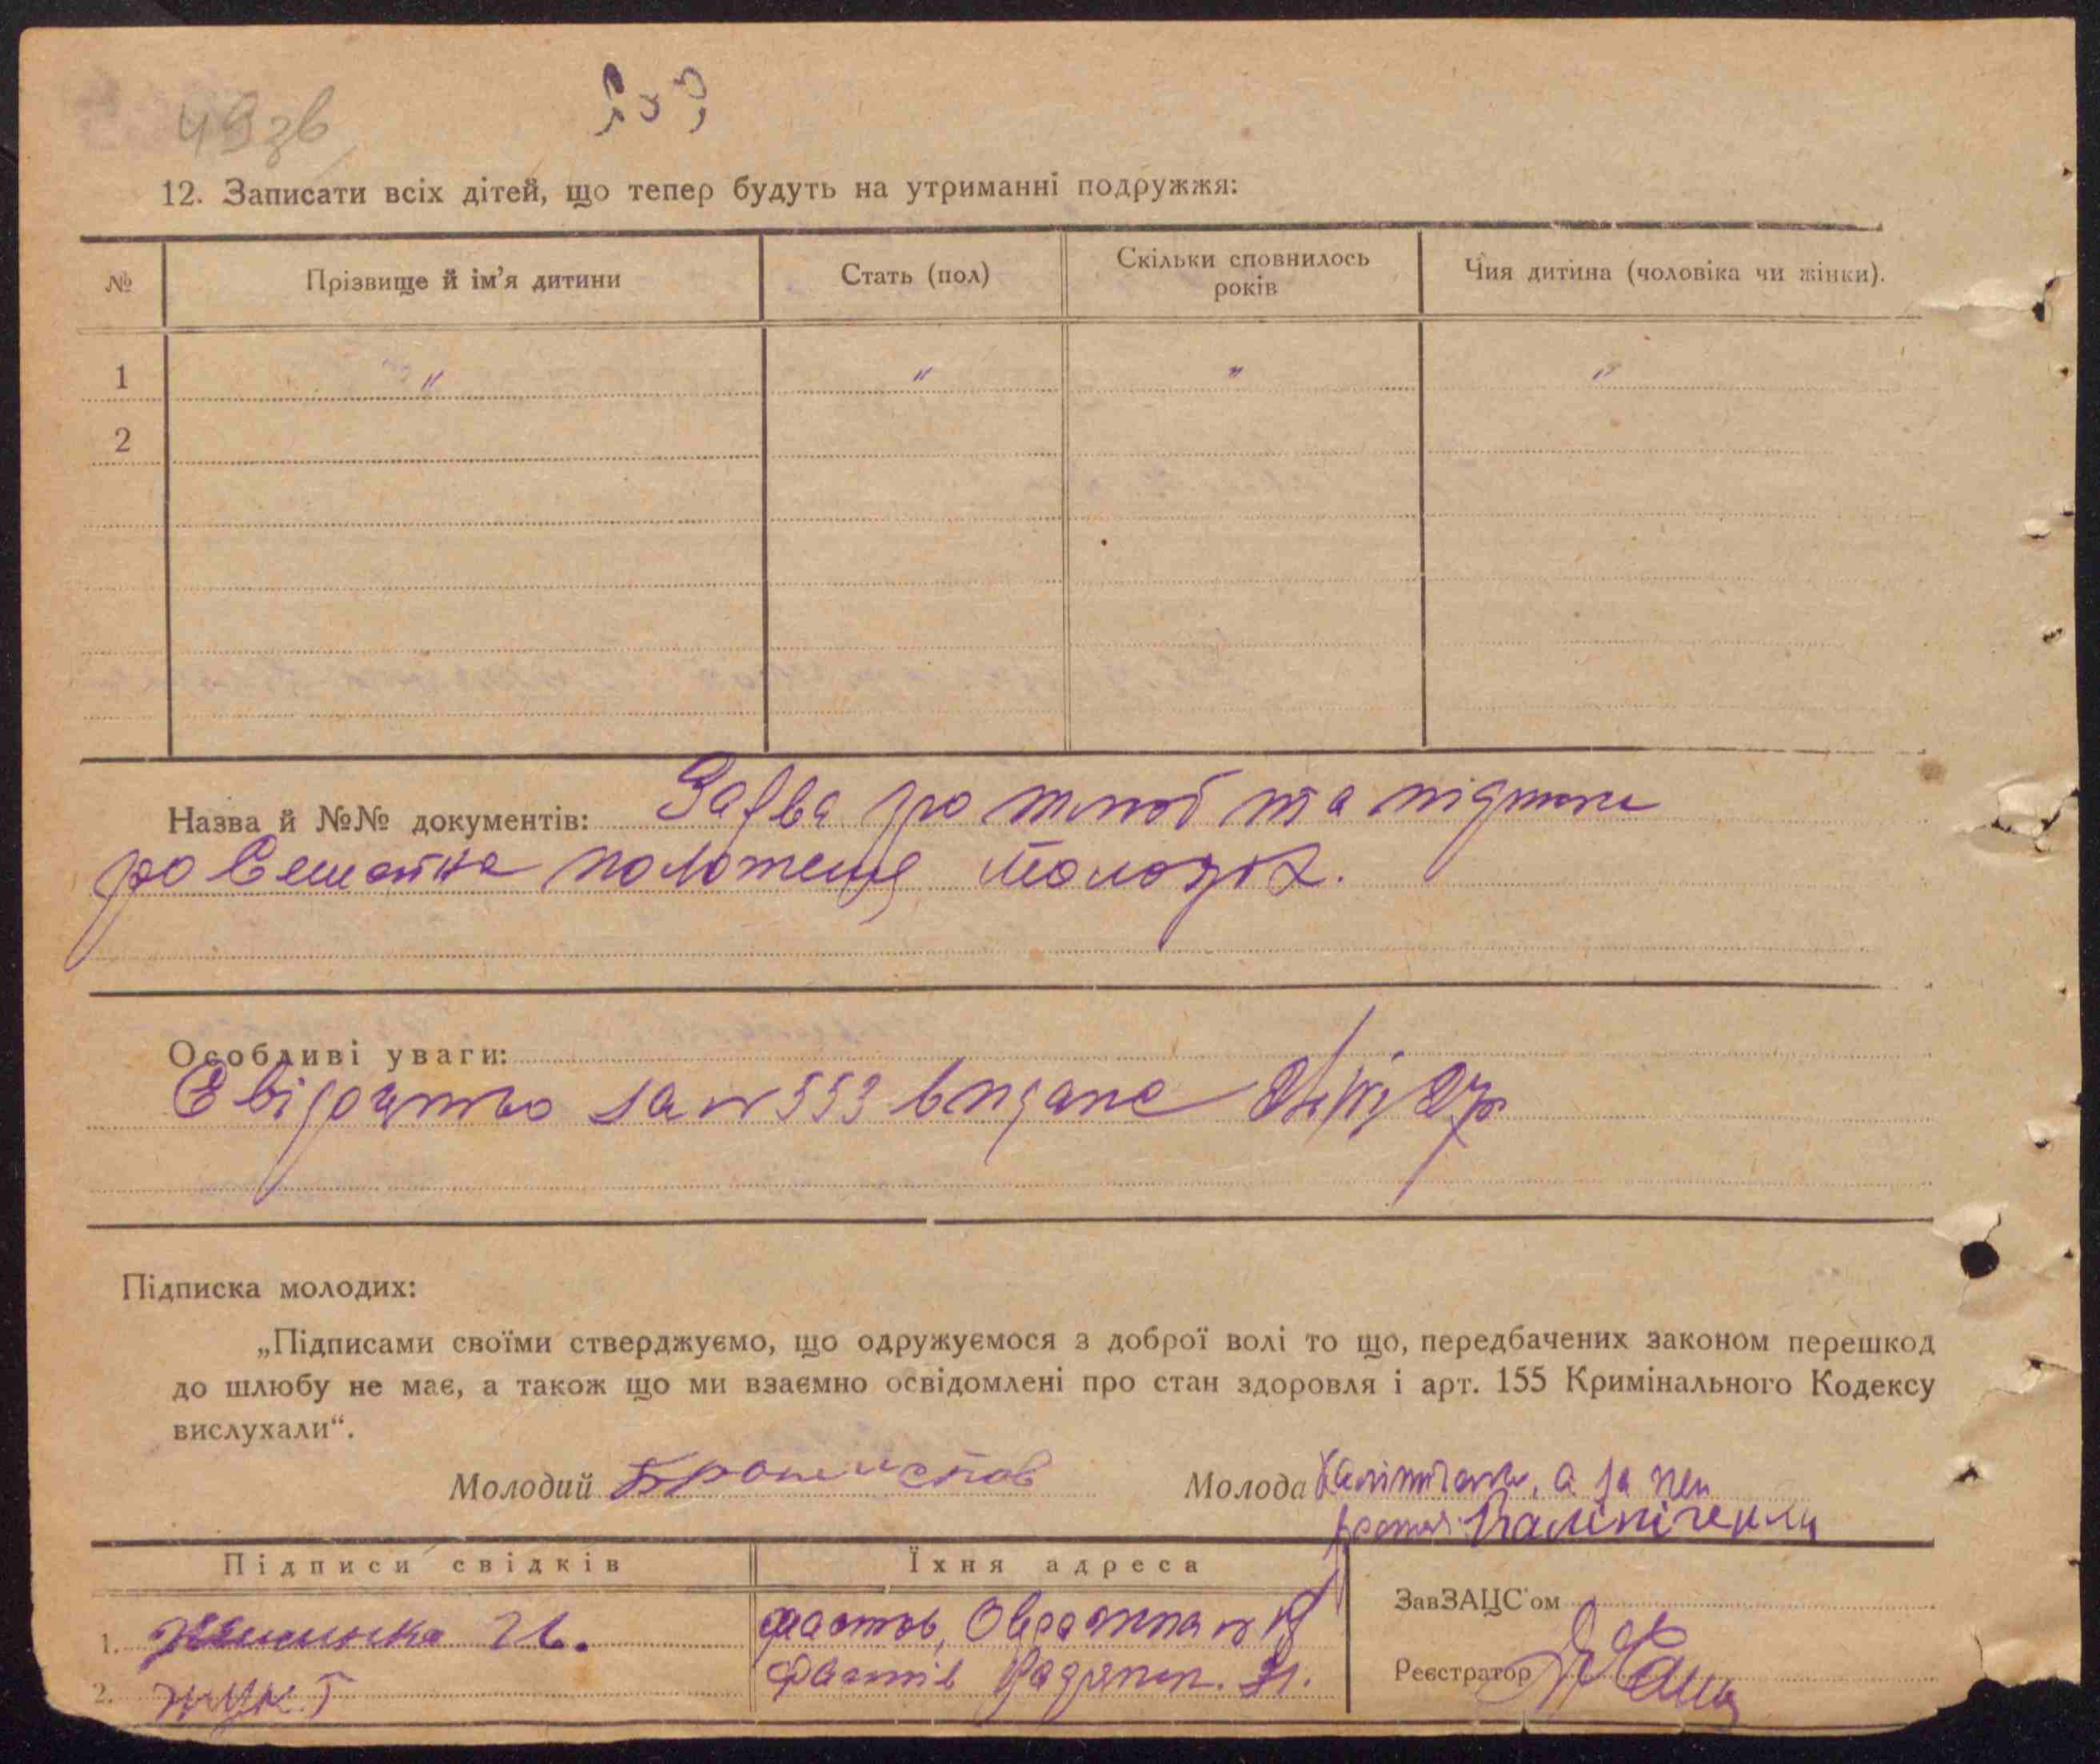 49зв
12. Записати всіх дітей, що тепер будуть на утриманні подружжя:
№ Прізвище й ім’я дитини Стать (пол) Скільки сповнилось років Чия дитина (чоловіка чи жінки).
1 " " " "
2
Назва й №№ документів: Заява про шлюб та підписки
про сімейне положення молодих.
Особливі уваги:
Свідоцтво за № 553 видане
Підписка молодих:
„Підписами своїми стверджуємо, що одружуємося з доброї волі то що, передбачених законом перешкод
до шлюбу не має, а також що ми взаємно освідомлені про стан здоровля і арт. 155 Кримінального Кодексу
вислухали“.
Молодий Молода а за неи
Підписи свідків Їхня адреса
ЗавЗАЦС’ом
1. Фастов,
Реєстратор
2. Фастів Радянск. 31.